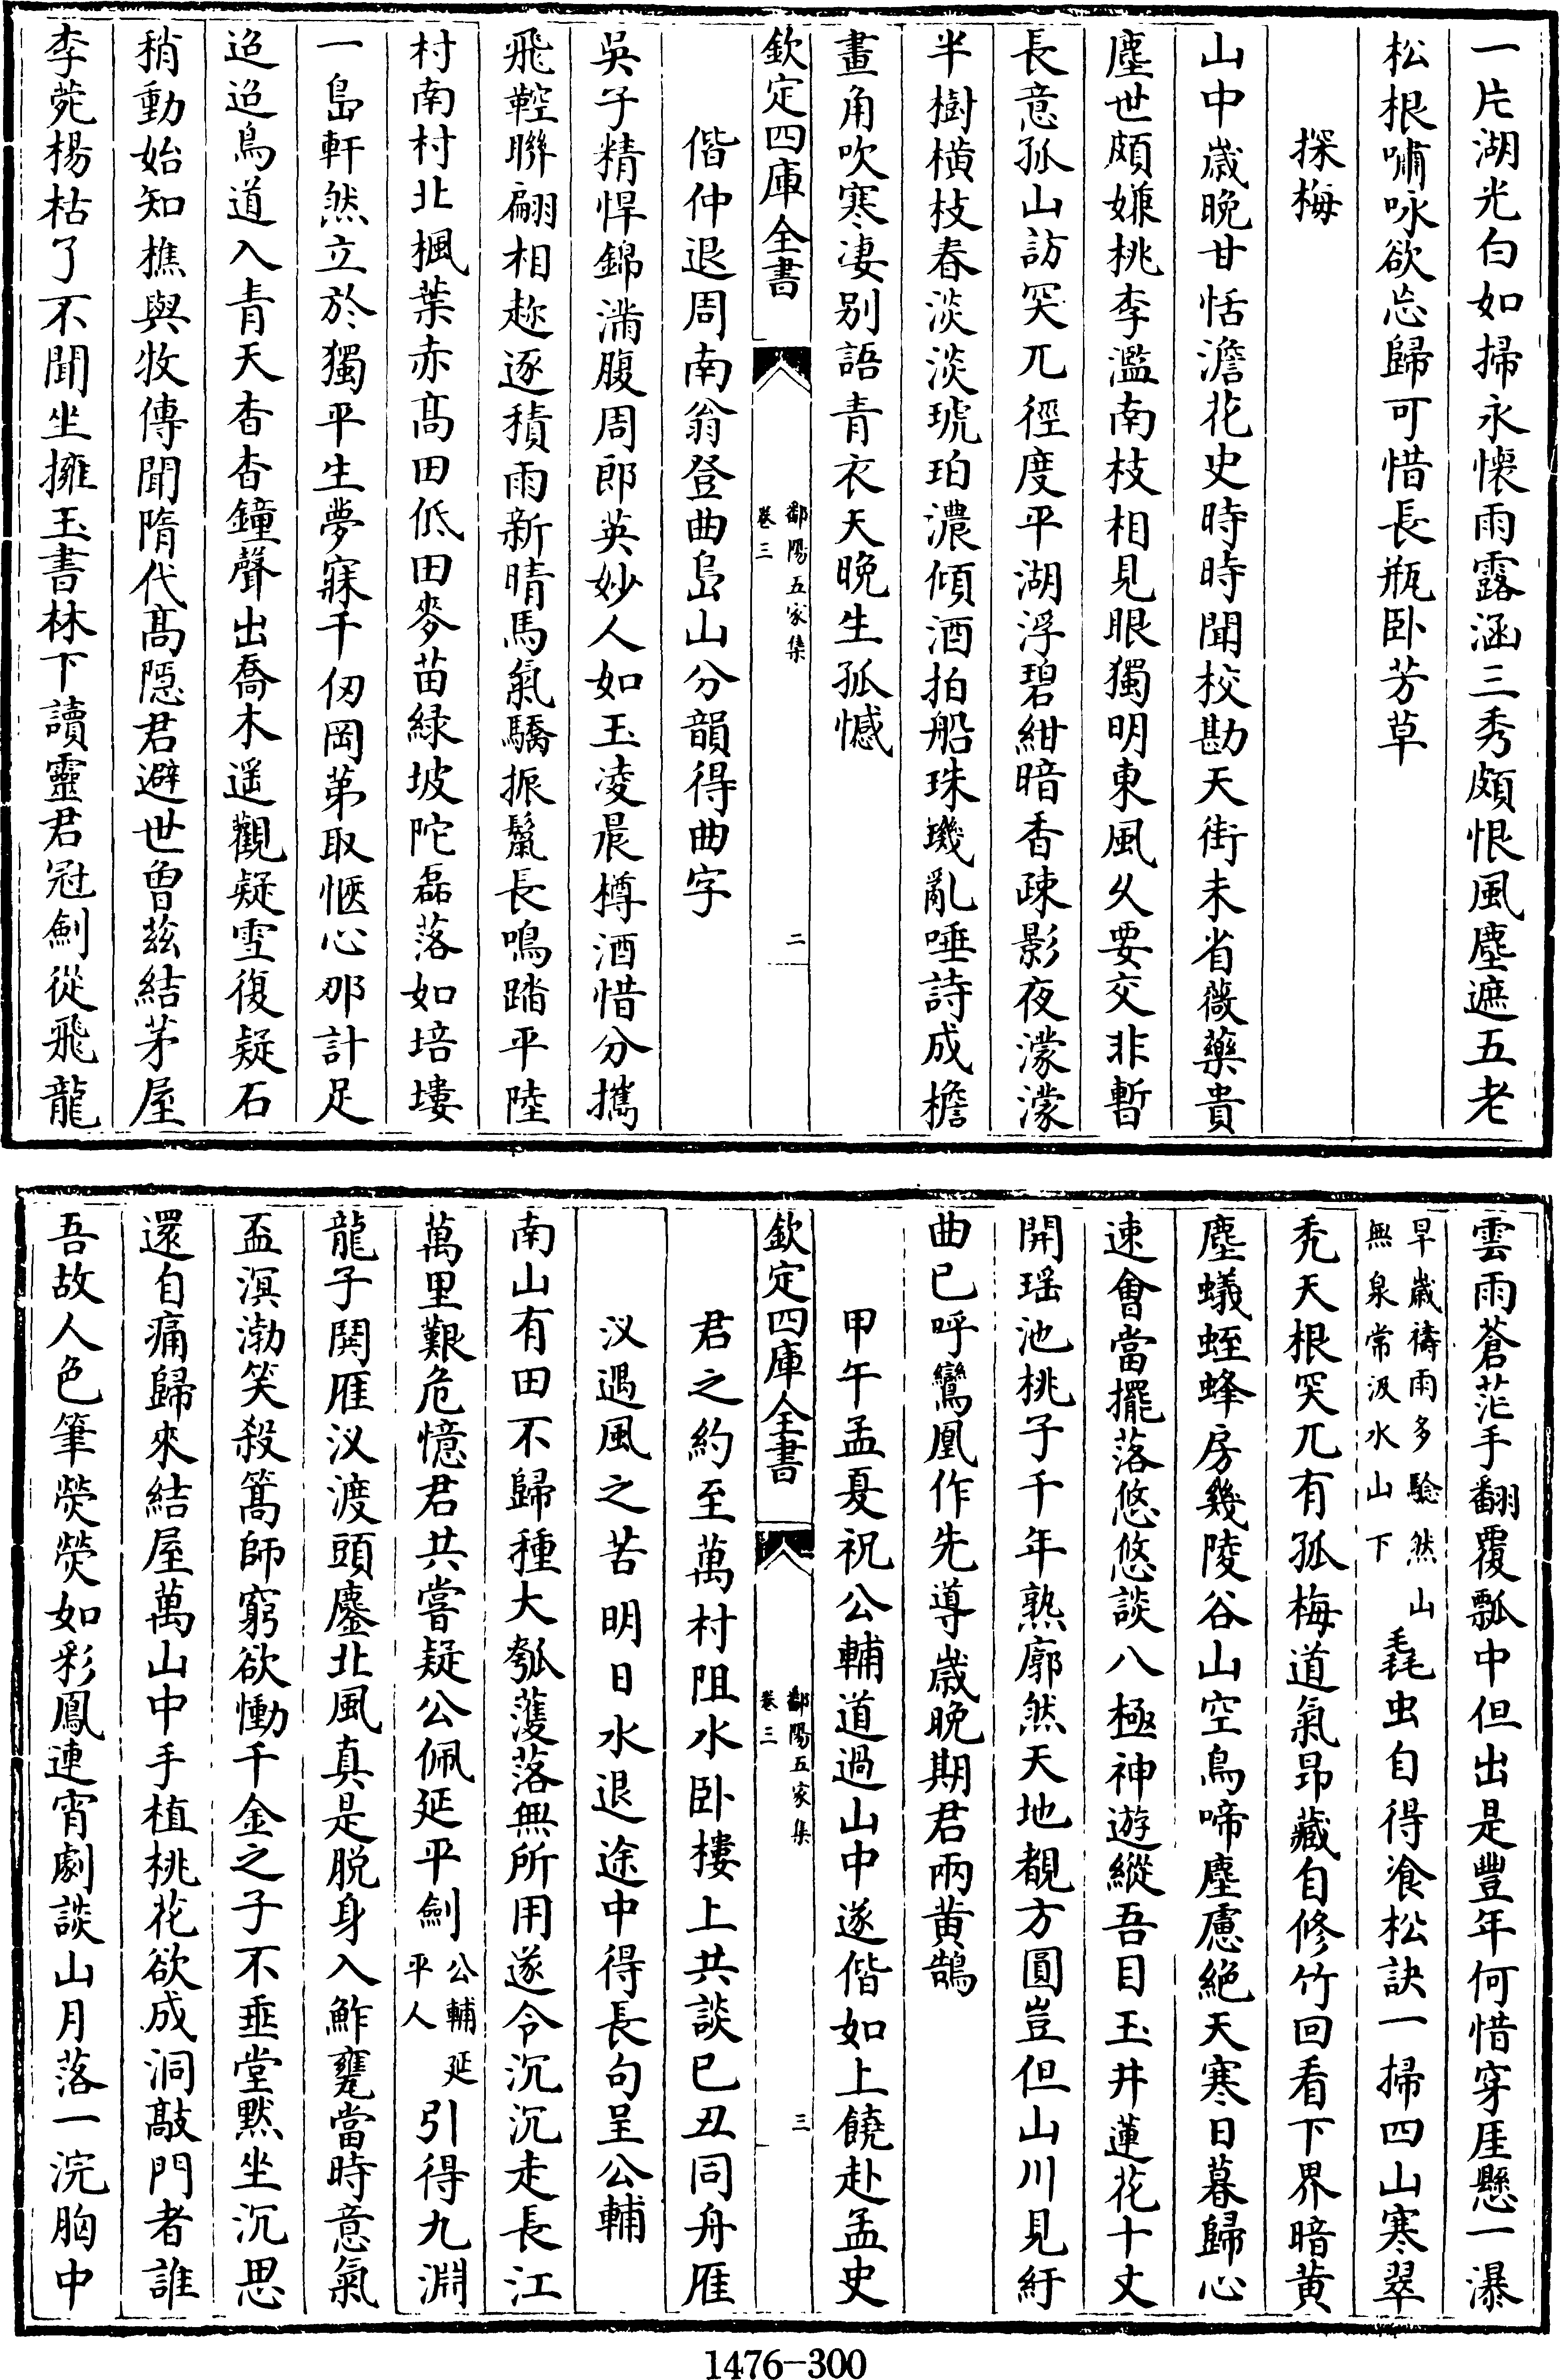 一片湖光白如掃永懐雨露涵三秀頗恨風塵遮五老
松根嘯咏欲忘歸可惜長瓶卧芳草
探梅
山中歳晚甘恬澹花史時時聞校勘天街未省薇藥貴
塵世頗嫌桃李濫南枝相見眼獨明東風久要交非暫
長意孤山訪突兀徑度平湖浮碧紺暗香疎影夜濛濛
半樹橫枝春淡淡琥珀濃傾酒拍船珠璣亂唾詩成檐
畫角吹寒凄别語青衣天晚生孤憾
欽定四庫全書
鄱陽五家集
卷三
二
偕仲退周南翁登曲島山分韻得曲字
吳子精悍錦滿腹周郎英妙人如玉凌晨樽酒惜分攜
飛鞚聯翩相趂逐積雨新晴馬氣驕振鬣長鳴踏平陸
村南村北楓葉赤髙田低田麥苗緑坡陀磊落如培塿
一島軒然立於獨平生夢寐千仞岡苐取愜心那計足
迢迢鳥道入青天杳杳鐘聲出喬木遥觀疑雪復疑石
稍動始知樵與牧傳聞隋代髙隠君避世曽兹結茅屋
李菀楊枯了不聞坐擁玉書林下讀靈君冠劍從飛龍
雲雨蒼茫手翻覆瓢中但出是豐年何惜穿厓懸一瀑
早歳禱雨多驗然山
無泉常汲水山下
毳虫自得飡松訣一掃四山寒翠
秃天根突兀有孤梅道氣昻藏自修竹回看下界暗黄
塵蟻蛭蜂房幾陵谷山空鳥啼塵慮絶天寒日暮歸心
速會當擺落悠悠談八極神遊縱吾目玉井蓮花十丈
開瑶池桃子千年熟廓然天地覩方圓豈但山川見紆
曲已呼鸞凰作先導歳晚期君兩黄鵠
甲午孟夏祝公輔道過山中遂偕如上饒赴孟史
欽定四庫全書
鄱陽五家集
卷三
三
君之約至萬村阻水卧樓上共談已丑同舟雁
汊遇風之苦明日水退途中得長句呈公輔
南山有田不歸種大瓠濩落無所用遂令沉沉走長江
萬里艱危憶君共嘗疑公佩延平劍
公輔延
平人
引得九淵
龍子鬨雁汊渡頭鏖北風真是脱身入鮓甕當時意氣
盃溟渤笑殺篙師窮欲慟千金之子不垂堂黙坐沉思
還自痛歸來結屋萬山中手植桃花欲成洞敲門者誰
吾故人色筆熒熒如彩鳳連宵劇談山月落一浣胸中
1476-300